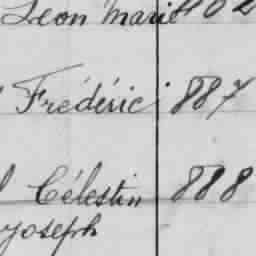 Léon Marie 402
Frédéric 887
Célestin 888
Joseph